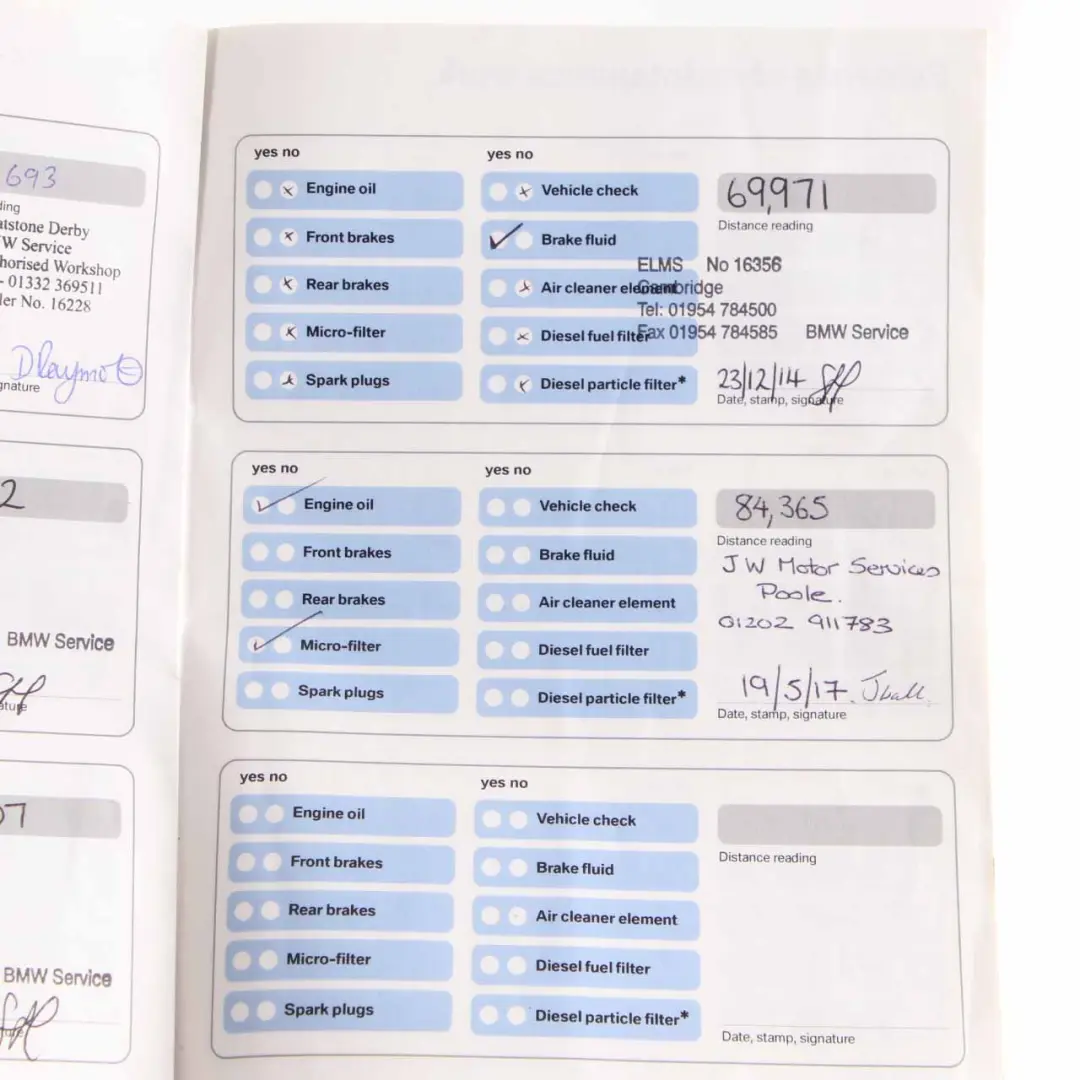 693
ding
atstone Derby
W Service
horised Workshop
- 01332 369511
ler No. 16228
gnature
2
BMW Service
ature
07
BMW Service
ture
yes no
yes no
Engine oil
Vehicle check
69,971
Distance reading
Front brakes
Brake fluid
ELMS No 16356
Rear brakes
Air cleaner element
Cambridge
Tel: 01954 784500
Micro-filter
Diesel fuel filter
Fax 01954 784585 BMW Service
Spark plugs
Diesel particle filter*
23/12/14
Date, stamp, signature
yes no
yes no
Engine oil
Vehicle check
84,365
Distance reading
Front brakes
Brake fluid
J W Motor Services
Poole.
Rear brakes
Air cleaner element
01202 911783
Micro-filter
Diesel fuel filter
Spark plugs
Diesel particle filter*
19/5/17. J Ball.
Date, stamp, signature
yes no
yes no
Engine oil
Vehicle check
Distance reading
Front brakes
Brake fluid
Rear brakes
Air cleaner element
Micro-filter
Diesel fuel filter
Spark plugs
Diesel particle filter*
Date, stamp, signature